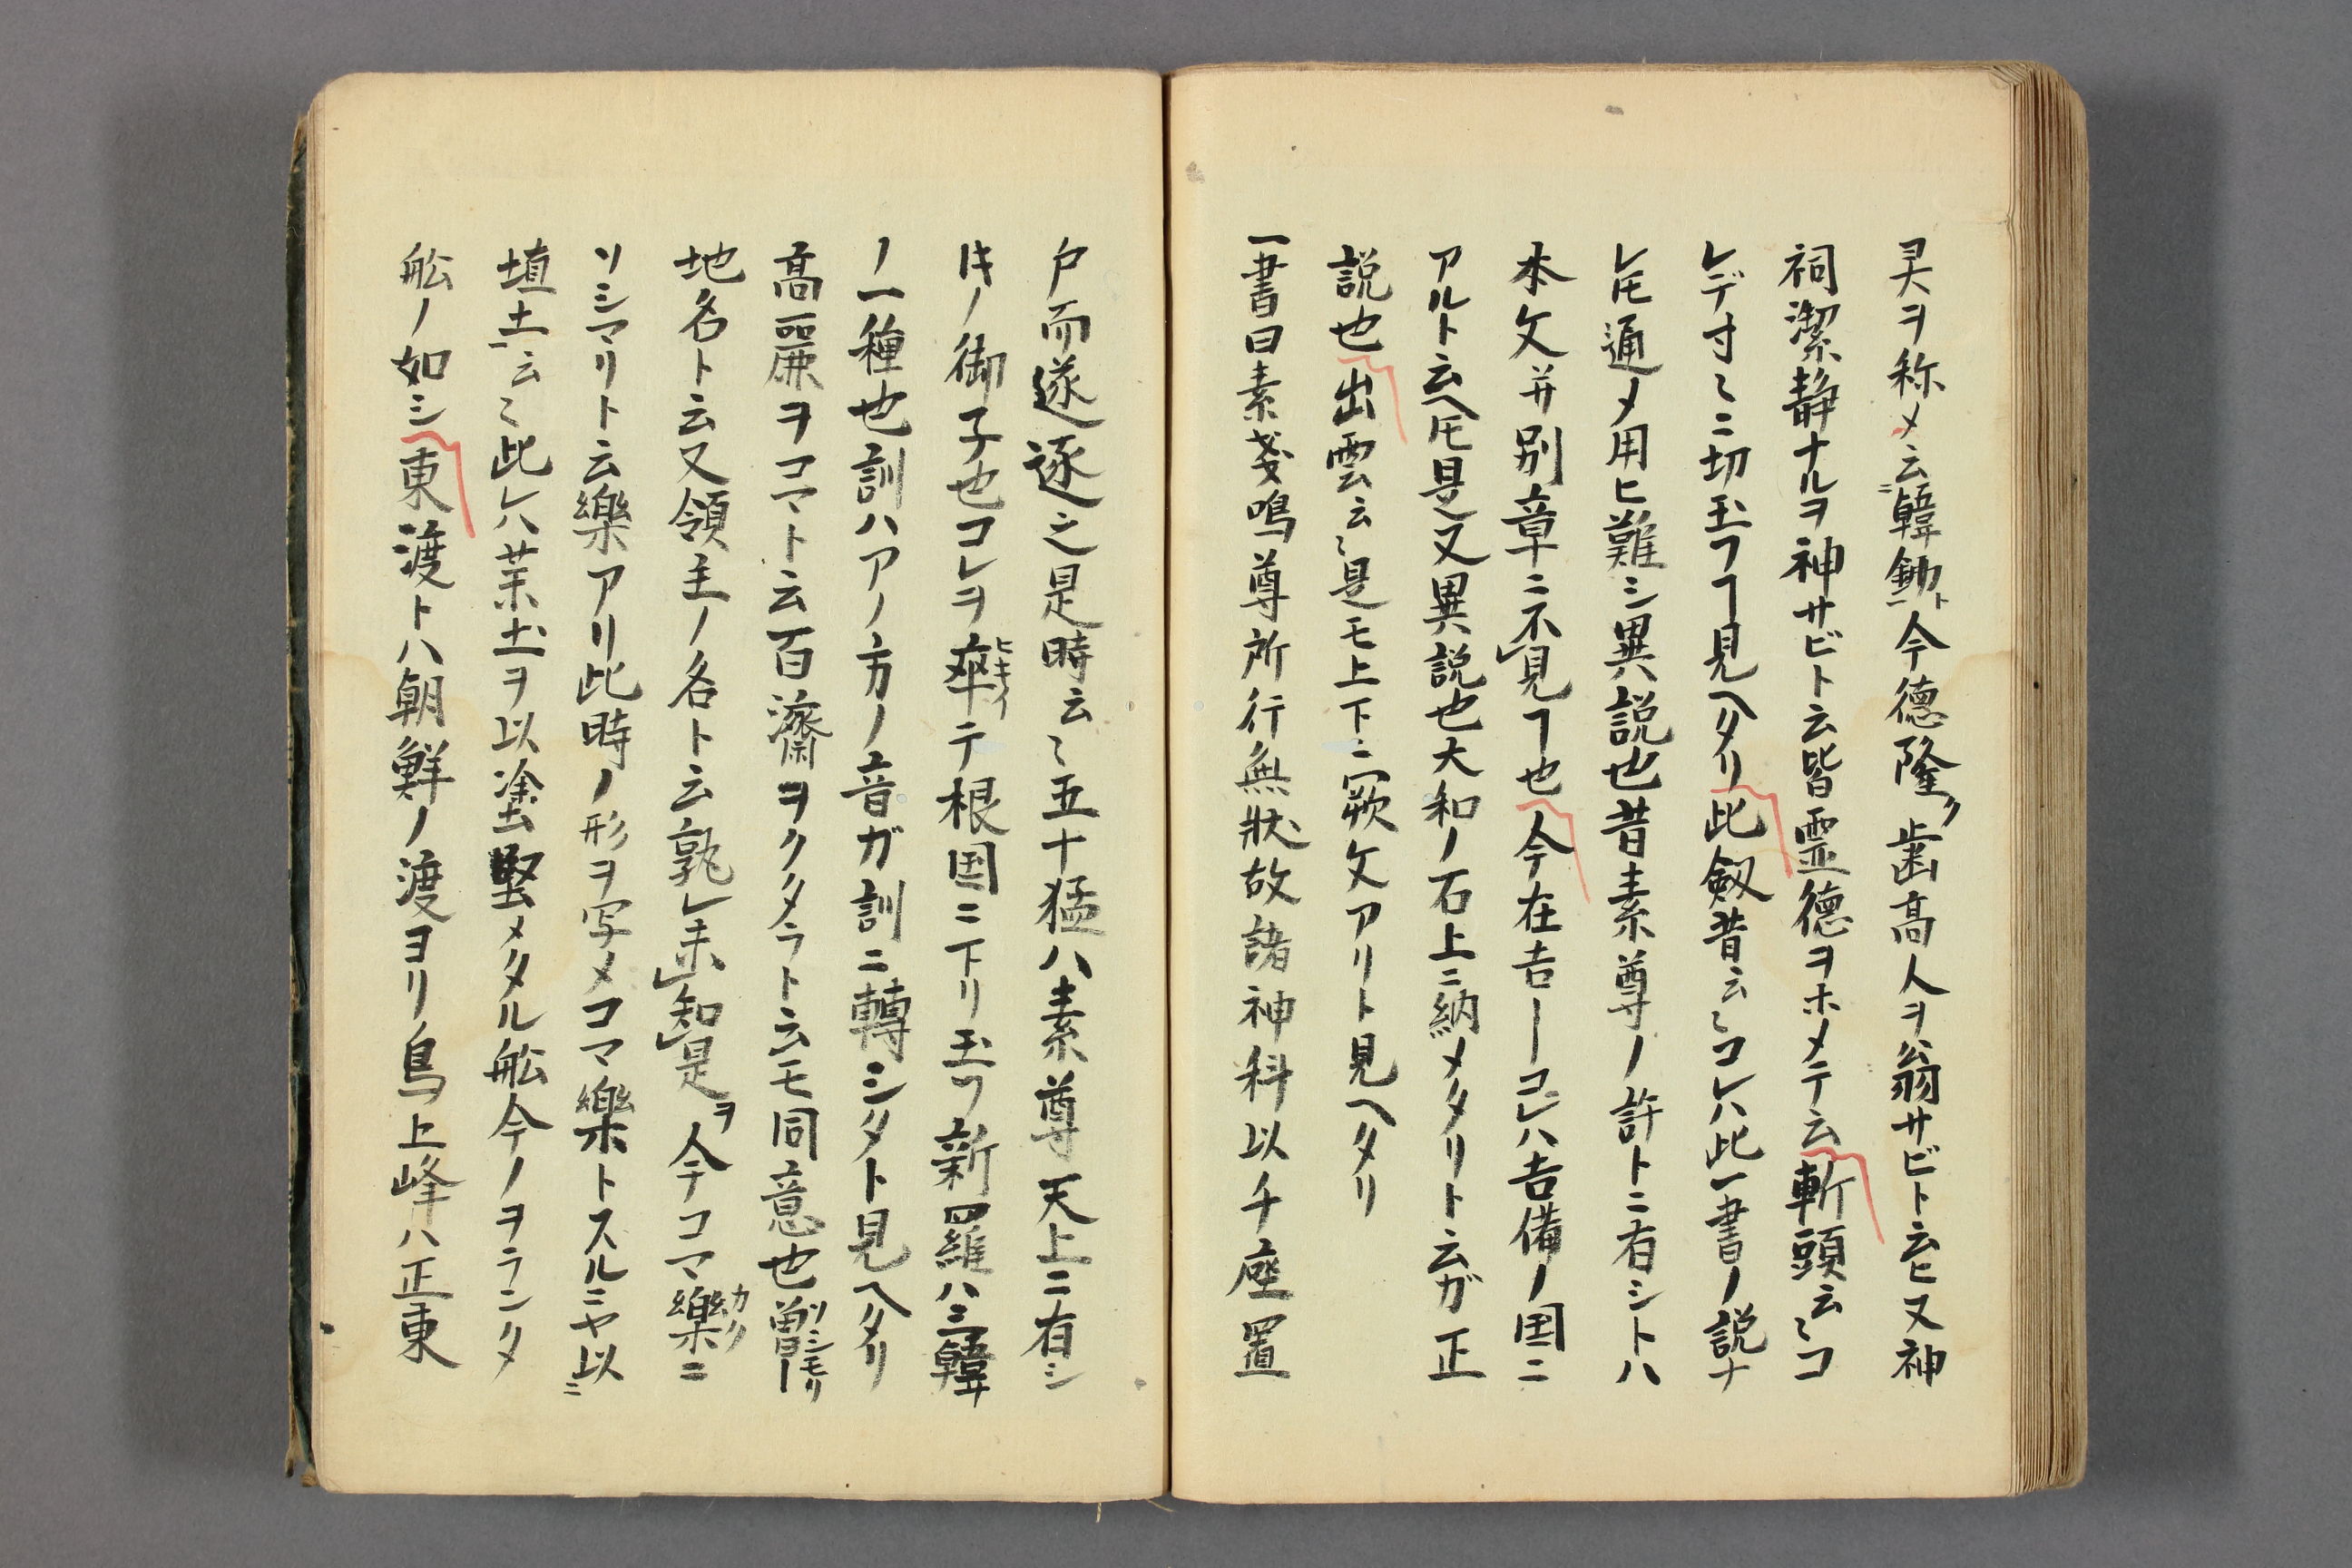 灵ヲ称メ云韓鋤ト今德隆ク歯高人ヲ翁サビト云ヒ又神
祠潔静ナルヲ神サビト云皆霊德ヲホメテ云斬頭云〻コ
レデ寸〻ニ切玉フヿ見ヘタリ此劔昔云〻コレハ此一書ノ説ナ
レ𪜈通メ用ヒ難シ異説也昔素尊ノ許トニ有シトハ
本文并別章ニ不見ヿ也今在吉ーコレハ吉備ノ国ニ
アルト云ヘ𪜈是又異説也大和ノ石上ニ納メタリト云ガ正
説也出雲云〻是モ上下ニ闕文アリト見ヘタリ
一書曰素戔鳴尊所行無狀故諸神科以千座置
戸而遂逐之是時云〻五十猛ハ素尊天上ニ有シ
𪜈ノ御子也コレヲ率ヒキイテ根国ニ下リ玉フ新羅ハ三韓
ノ一種也訓ハアノ方ノ音ガ訓ニ轉シタト見ヘタリ
髙麗ヲコマト云百濟ヲクタラト云モ同意也曽ーソシモリ
地名ト云又領主ノ名ト云孰レ未知是ヲ今コマ樂カクニ
ソシマリト云樂アリ此時ノ形ヲ写メコマ樂トスルニヤ以
埴土云〻此レハ茉土ヲ以塗堅メタル舩今ノヲランタ
舩ノ如シ東渡トハ朝鮮ノ渡ヨリ鳥上峰ハ正東